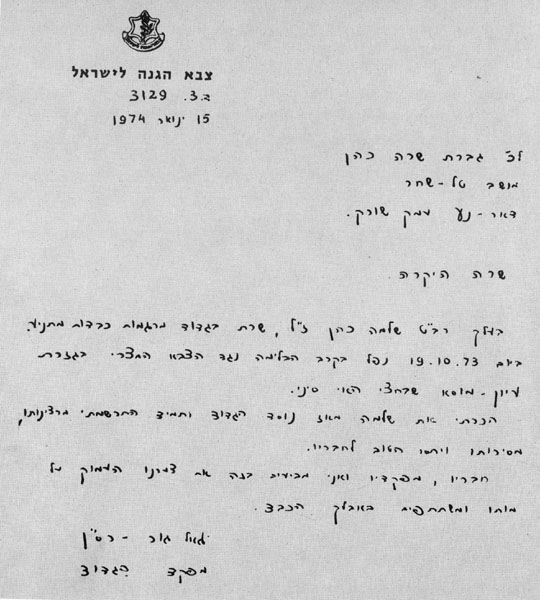 צבא הגנה לישראל
ד.צ. 3129
15 ינואר 1974
לכ' גברת שרה כהן
מושב טל-שחר
דאר-נע עמק שורק.
שרה היקרה.
בעלך רב"ט שלמה כהן ז"ל, שרת בגדוד מרגמות כבדות מתניע.
ביום 19.10.73 נפל בקרב הבלימה נגד הצבא המצרי בגזרת
עיון-מוסא שבחצי האי סיני.
הכרתי את שלמה מאז נוסד הגדוד ותמיד התרשמתי מרצינותו,
מסירותו ויחסו הטוב לחבריו.
חבריו, מפקדיו ואני מביעים בזה את צערנו העמוק על
מותו ומשתתפים באבלך הכבד.
יגאל גור - רס"ן
מפקד הגדוד